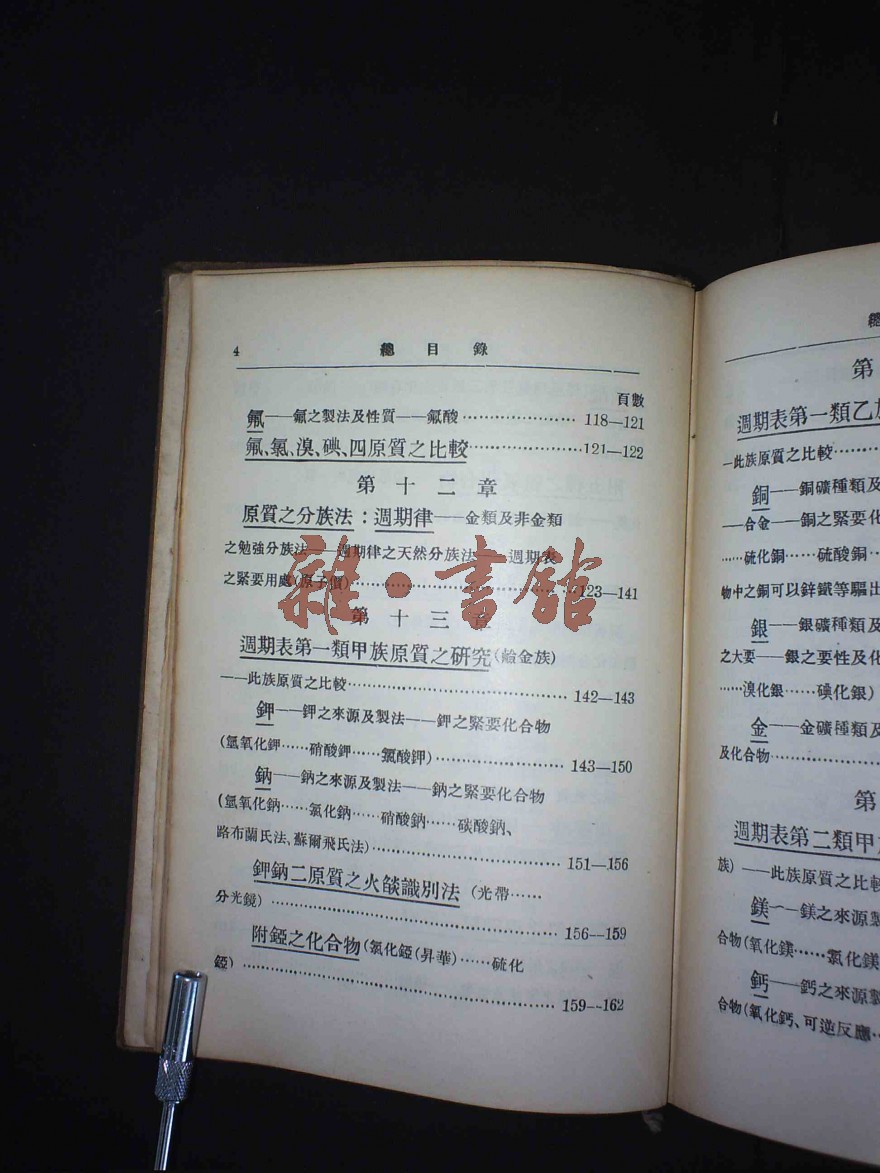 4 總目錄
頁數
氟——氟之製法及性質——氟酸…………………… 118—121
氟、氯、溴、碘、四原質之比較……………………121—122
第十二章
原質之分族法：週期律——金類及非金類
之勉強分族法——週期律之天然分族法——週期表
之緊要用處(原子價)……………………123—141
第十三章
週期表第一類甲族原質之研究(鹼金族)
——此族原質之比較…………………… 142—143
鉀——鉀之來源及製法——鉀之緊要化合物
(氫氧化鉀……硝酸鉀……氯酸鉀)…………………… 143—150
鈉——鈉之來源及製法——鈉之緊要化合物
(氫氧化鈉……氯化鈉……硝酸鈉……碳酸鈉、
路布蘭氏法、蘇爾飛氏法)…………………… 151—156
鉀鈉二原質之火燄識別法 (光帶……
分光鏡) …………………… 156—159
附錏之化合物(氯化錏(昇華)……硫化
錏) …………………… 159—162
雜·書館
總
第
週期表第一類乙族
—此族原質之比較………
銅——銅礦種類及
——合金——銅之緊要化
……硫化銅……硫酸銅…
物中之銅可以鋅鐵等驅出
銀——銀礦種類及
之大要——銀之要性及化
……溴化銀……碘化銀)
金——金礦種類及
及化合物…………
第
週期表第二類甲
族) ——此族原質之比較
鎂——鎂之來源製
合物(氧化鎂……氯化鎂
鈣——鈣之來源製
合物(氧化鈣、可逆反應…